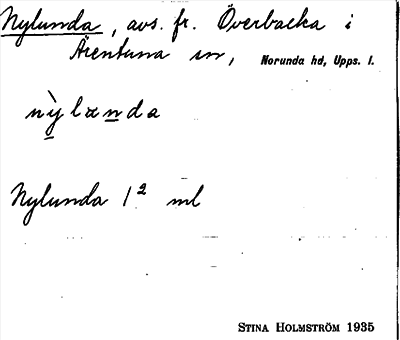 Nylunda, avs. fr. Överbacka i
Ärentuna sn, Norunda hd, Upps. l.
nỳlαnda
Nylunda 1² ml
STINA HOLMSTRÖM 1935